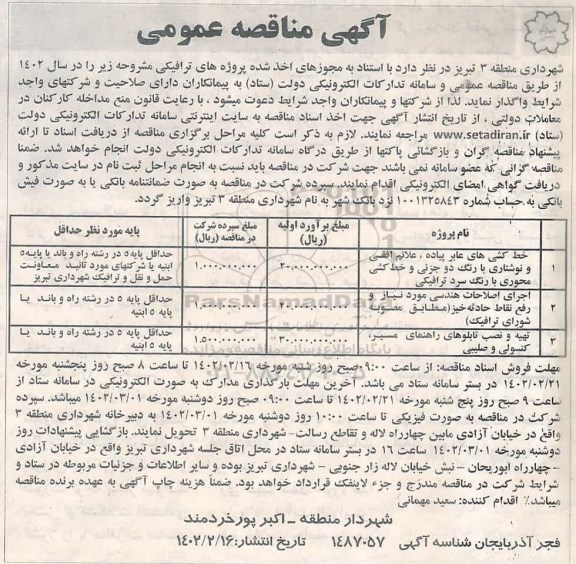 آگهی مناقصه عمومی
شهرداری منطقه ۳ تبریز در نظر دارد با استناد به مجوزهای اخذ شده پروژه های ترافیکی مشروحه زیر را در سال ۱۴۰۲
از طریق مناقصه عمومی و سامانه تدارکات الکترونیکی دولت (ستاد) به پیمانکاران دارای صلاحیت و شرکتهای واجد
شرایط واگذار نماید. لذا از شرکتها و پیمانکاران واجد شرایط دعوت میشود ، با رعایت قانون منع مداخله کارکنان در
معاملات دولتی ، از تاریخ انتشار آگهی جهت اخذ اسناد مناقصه به سایت اینترنتی سامانه تدارکات الکترونیکی دولت
(ستاد) www.setadiran.ir مراجعه نمایند. لازم به ذکر است کلیه مراحل برگزاری مناقصه از دریافت اسناد تا ارائه
پیشنهاد مناقصه گران و بازگشائی پاکتها از طریق درگاه سامانه تدارکات الکترونیکی دولت انجام خواهد شد. ضمنا
مناقصه گرانی که عضو سامانه نمی باشند جهت شرکت در مناقصه باید نسبت به انجام مراحل ثبت نام در سایت مذکور و
دریافت گواهی امضای الکترونیکی اقدام نمایند. سپرده شرکت در مناقصه به صورت ضمانتنامه بانکی یا به صورت فیش
بانکی به حساب شماره ۱۰۰۱۳۲۵۸۴۳ نزد بانک شهر به نام شهرداری منطقه ۳ تبریز واریز گردد.
نام پروژه | مبلغ برآورد اولیه (ریال) | مبلغ سپرده شرکت در مناقصه (ریال) | پایه مورد نظر حداقل
۱ | خط کشی های عابر پیاده ، علائم افقی و نوشتاری با رنگ دو جزئی و خط کشی محوری با رنگ سرد ترافیکی | ۲۰.۰۰۰.۰۰۰.۰۰۰ | ۱.۰۰۰.۰۰۰.۰۰۰ | حداقل پایه ۵ در رشته راه و باند یا پایه ۵ ابنیه یا شرکتهای مورد تائید معاونت حمل و نقل و ترافیک شهرداری تبریز
۲ | اجرای اصلاحات هندسی مورد نیاز و رفع نقاط حادثه خیز (مطابق مصوبه شورای ترافیک) | ۱.۰۰۰.۰۰۰.۰۰۰ | حداقل پایه ۵ در رشته راه و باند یا پایه ۵ ابنیه
۳ | تهیه و نصب تابلوهای راهنمای مسیر، کنسولی و صلیبی | ۳۰.۰۰۰.۰۰۰.۰۰۰ | ۱.۵۰۰.۰۰۰.۰۰۰ | حداقل پایه ۵ در رشته راه و باند یا پایه ۵ ابنیه
ParsNamadData
مهلت فروش اسناد مناقصه: از ساعت ۰۹:۰۰ صبح روز شنبه مورخه ۱۴۰۲/۰۲/۱۶ تا ساعت ۸ صبح روز پنجشنبه مورخه
۱۴۰۲/۰۲/۲۱ در بستر سامانه ستاد می باشد. آخرین مهلت بارگذاری مدارک به صورت الکترونیکی در سامانه ستاد از
ساعت ۹ صبح روز پنج شنبه مورخه ۱۴۰۲/۰۲/۲۱ تا ساعت ۰۹:۰۰ صبح روز دوشنبه مورخه ۱۴۰۲/۰۳/۰۱ میباشد. سپرده
شرکت در مناقصه به صورت فیزیکی تا ساعت ۱۰:۰۰ روز دوشنبه مورخه ۱۴۰۲/۰۳/۰۱ به دبیرخانه شهرداری منطقه ۳
واقع در خیابان آزادی مابین چهارراه لاله و تقاطع رسالت- شهرداری منطقه ۳ تحویل نمایند. بازگشایی پیشنهادات روز
دوشنبه مورخه ۱۴۰۲/۰۳/۰۱ ساعت ۱۶ در بستر سامانه ستاد در محل اتاق جلسه شهرداری تبریز واقع در خیابان آزادی
- چهارراه ابوریحان - نبش خیابان لاله زار جنوبی - شهرداری تبریز بوده و سایر اطلاعات و جزئیات مربوطه در ستاد و
شرایط شرکت در مناقصه مندرج و جزء لاینفک قرارداد خواهد بود. ضمناً هزینه چاپ آگهی به عهده برنده مناقصه
میباشد./ اقدام کننده: سعید مهمانی
شهردار منطقه – اکبر پورخردمند
فجر آذربایجان شناسه آگهی ۱۴۸۷۰۵۷ تاریخ انتشار: ۱۴۰۲/۲/۱۶